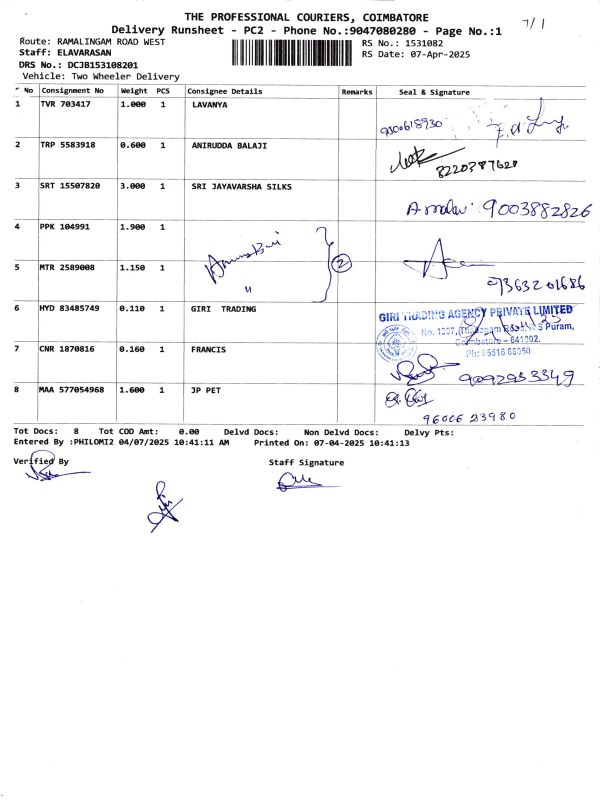 THE PROFESSIONAL COURIERS, COIMBATORE
7/1
Delivery Runsheet - PC2 - Phone No.:9047080280 - Page No.:1
Route: RAMALINGAM ROAD WEST
RS No.: 1531082
Staff: ELAVARASAN
RS Date: 07-Apr-2025
DRS No.: DCJB153108201
Vehicle: Two Wheeler Delivery
No Consignment No Weight PCS Consignee Details Remarks Seal & Signature
1 TVR 703417 1.000 1 LAVANYA
9300618930
2 TRP 5583918 0.600 1 ANIRUDDA BALAJI
8220387628
3 SRT 15507820 3.000 1 SRI JAYAVARSHA SILKS
9003882826
4 PPK 104991 1.900 1
2
5 MTR 2589008 1.150 1
"
9363201686
6 HYD 83485749 0.110 1 GIRI TRADING
GIRI TRADING AGENCY PRIVATE LIMITED
Puram,
Coimbatore - 641002.
7 CNR 1870816 0.160 1 FRANCIS
9092933349
8 MAA 577054968 1.600 1 JP PET
96006 23980
Tot Docs: 8 Tot COD Amt: 0.00 Delvd Docs: Non Delvd Docs: Delvy Pts:
Entered By :PHILOMI2 04/07/2025 10:41:11 AM Printed On: 07-04-2025 10:41:13
Verified By Staff Signature